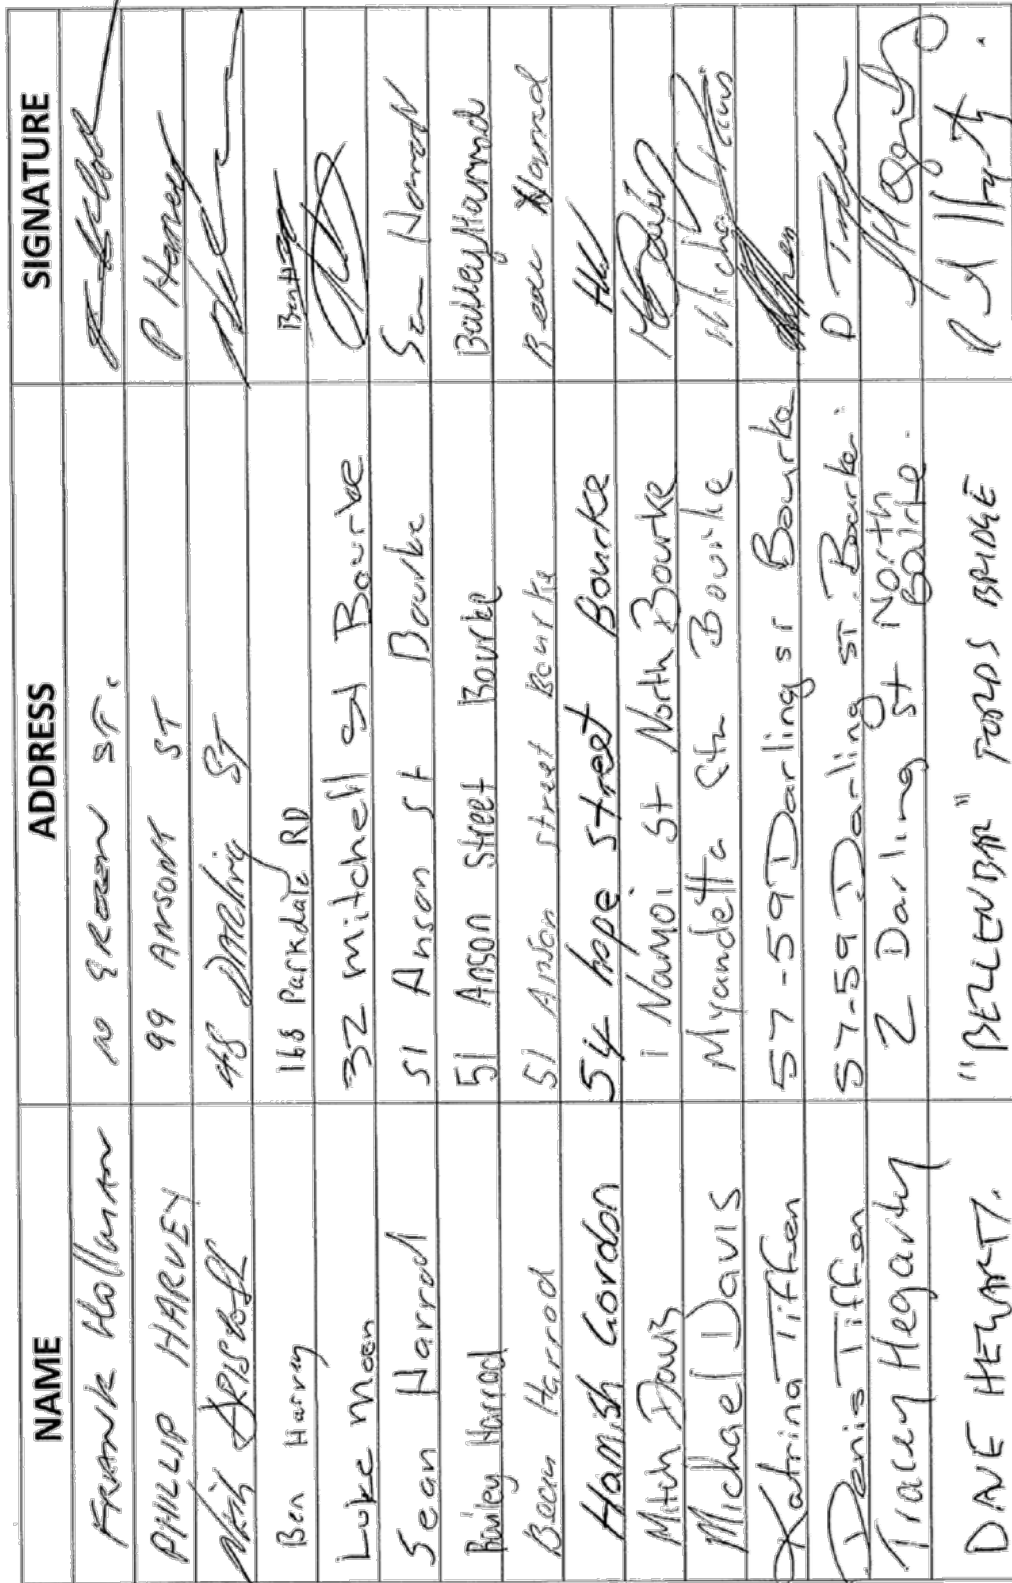 NAME ADDRESS SIGNATURE
FRANK Hollman 10 GREEN ST.
PHILLIP HARVEY 99 ANSON ST P Harvey
48 DARLING ST
Ben Harvey 168 Parkdale RD Ben H
Luke Moon 32 Mitchell st Bourke
Sean Harrod 51 Anson St Bourke Sean Harrod
Bailey Harrod 51 Anson Street Bourke Bailey Harrod
Beau Harrod 51 Anson Street Bourke Beau Harrod
Hamish Gordon 54 hope Street Bourke
Mitch Davis 1 Namoi St North Bourke M Davis
Michael Davis Myandetta Stn Bourke Michael Davis
Katrina Tiffen 57-59 Darling st Bourke
Denis Tiffen 57-59 Darling st. Bourke. D Tiffen
Tracey Hegarty 2 Darling St North Bourke. Hegarty
DAVE HEWART. "BELLENBAR" FORDS BRIDGE